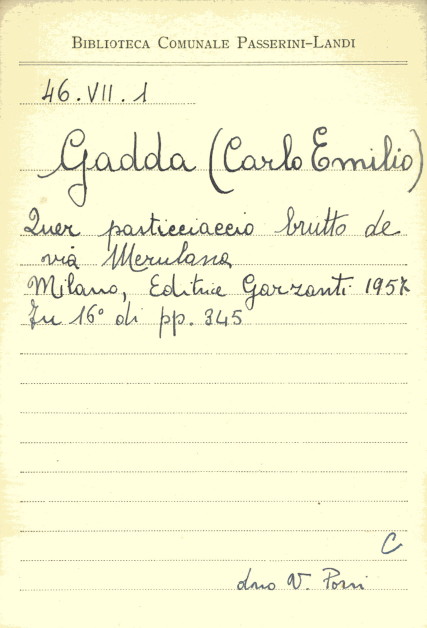 BIBLIOTECA COMUNALE PASSERINI-LANDI
46.VII.1
Gadda (Carlo Emilio)
Quer pasticciaccio brutto de
via Merulana
Milano, Editrice Garzanti 1957
In 16° di pp. 345
C
dno V.